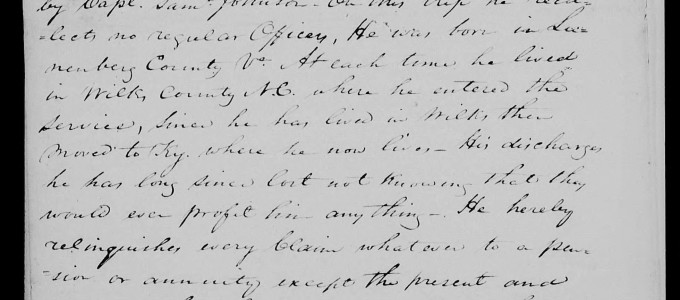 by Capt. Saml Johnson - On this trip he recol=
=lects no regular Officers, He was born in Lu=
nenberg County Va. At each time he lived
in Wilks County N.C. where he entered the
service, Since he has lived in Wilks then
moved to Ky. where he now lives - His discharges
he has long since lost not knowing that they
would ever profit him anything -. He hereby
relinquishes every Claim whatever to a pen=
=sion or annuity except the present and